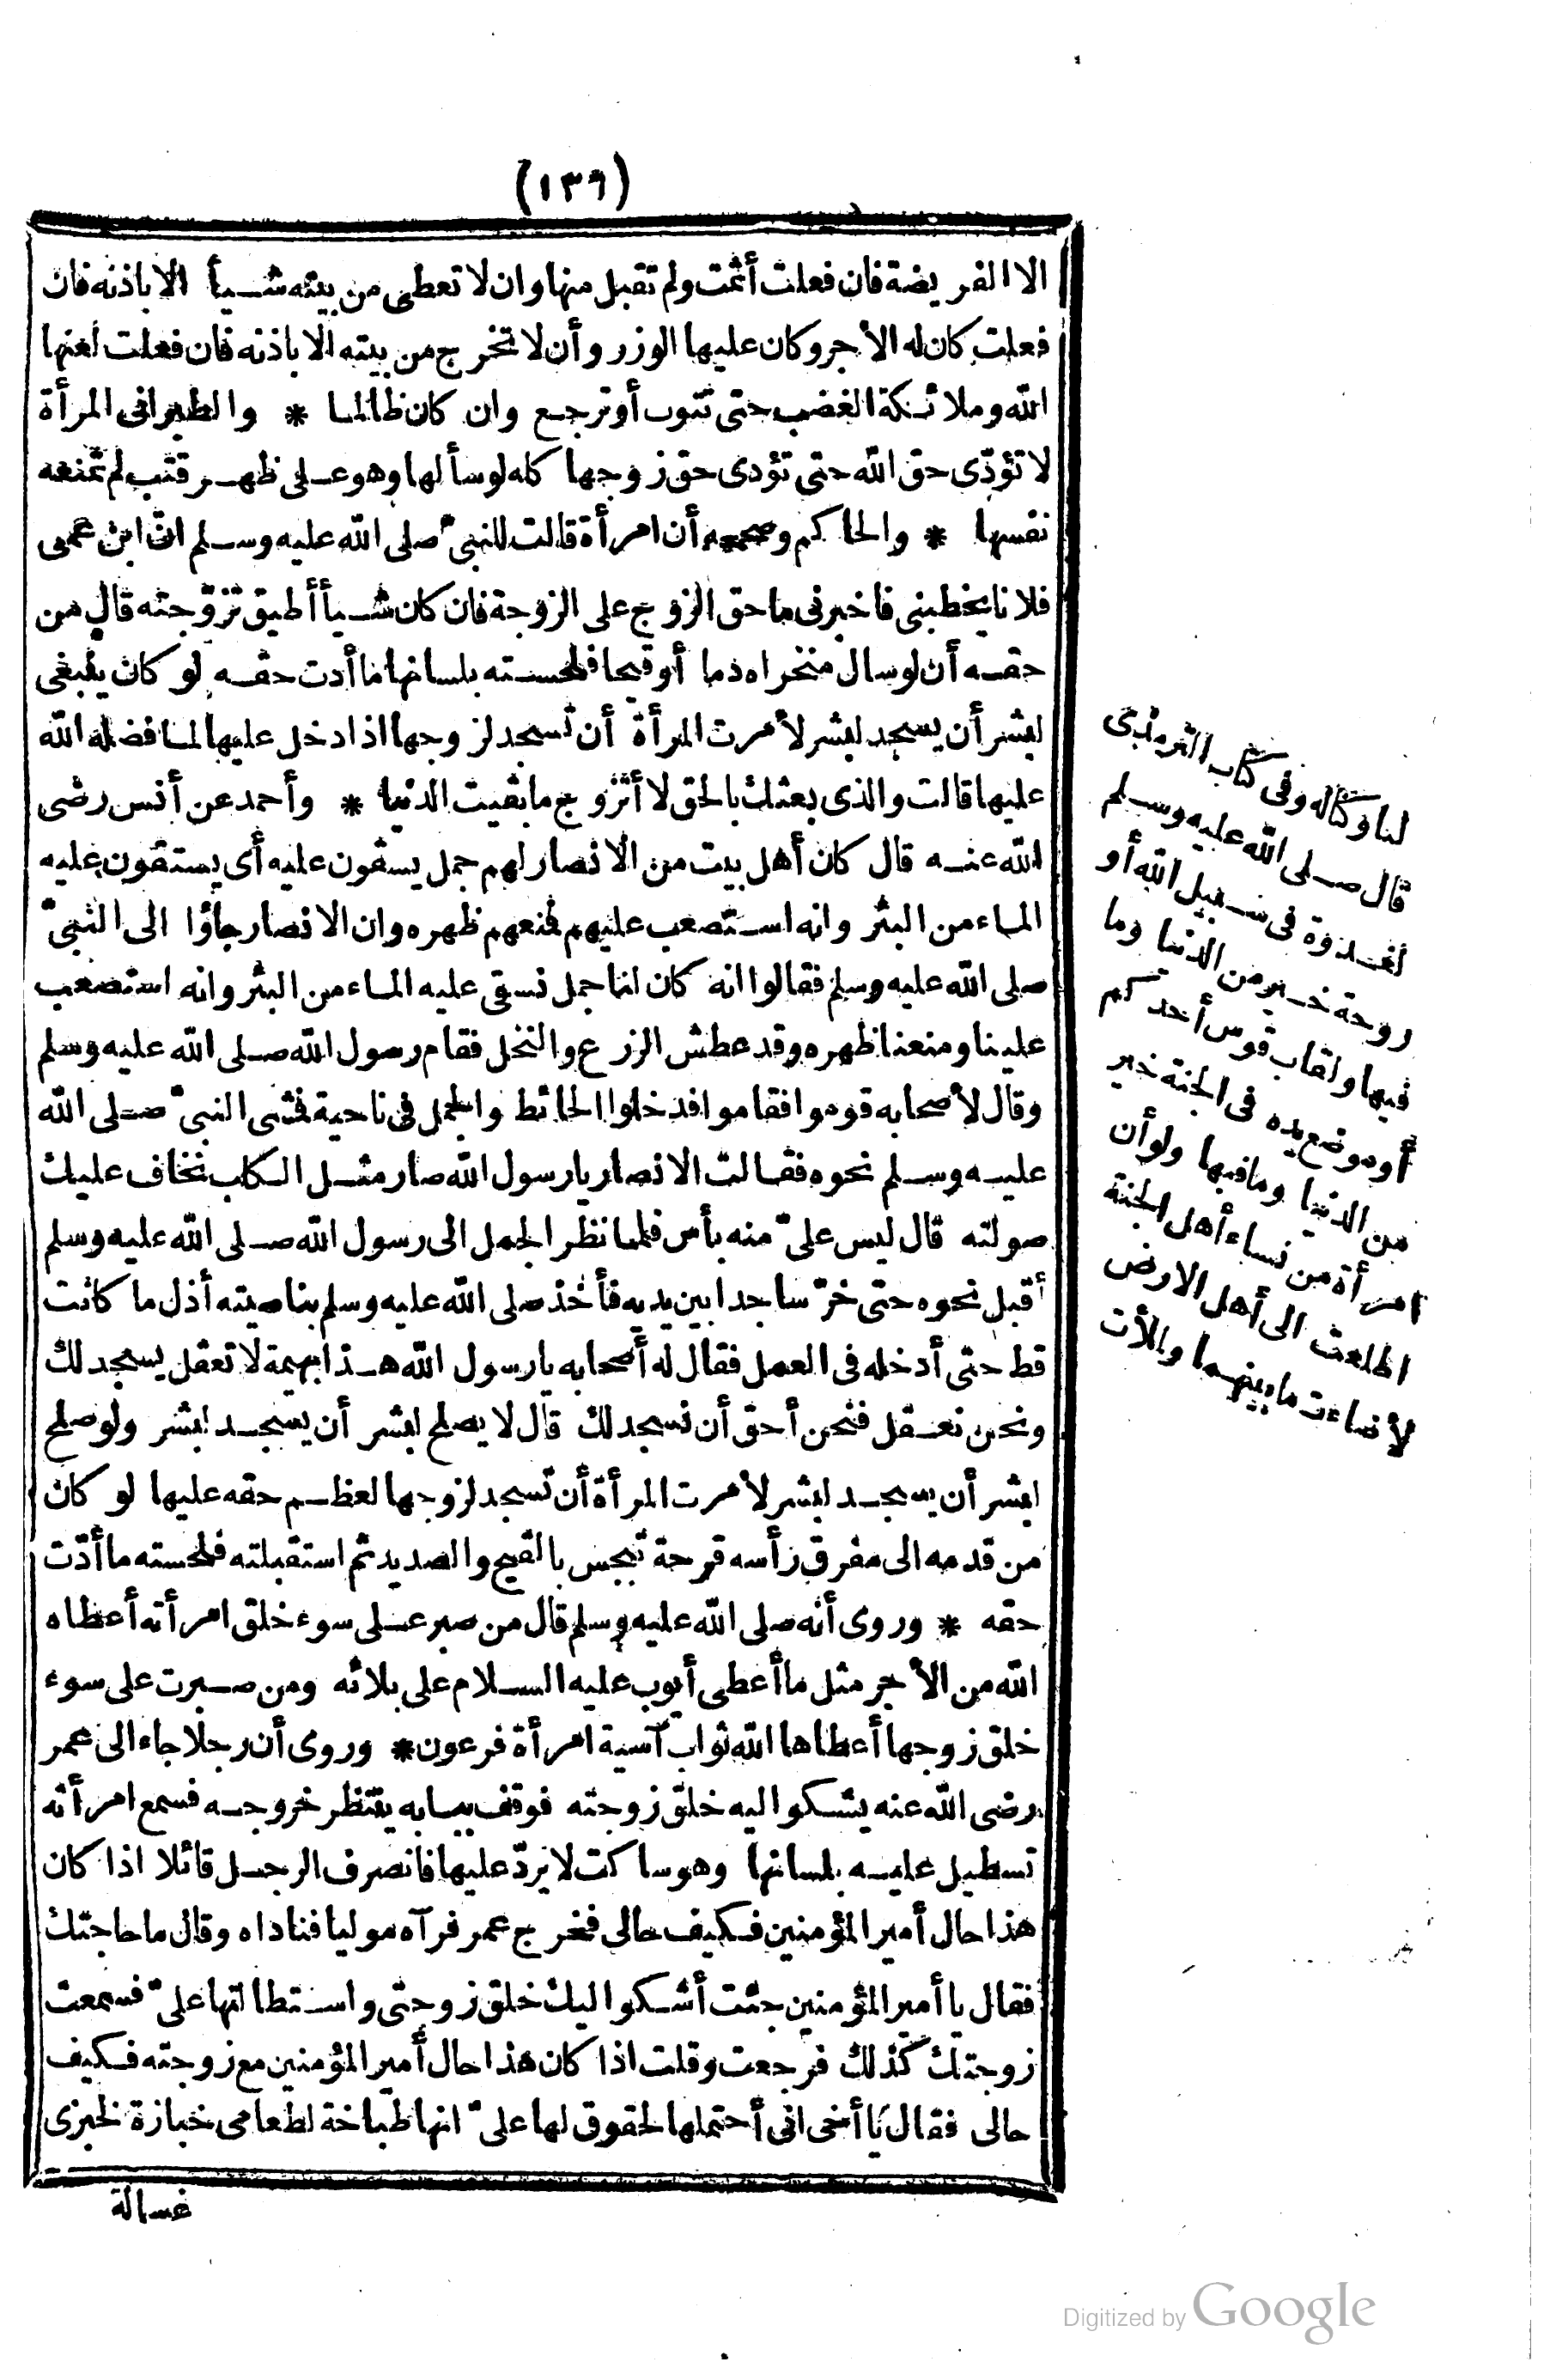 (١٣٦)
الا الفريضة فان فعلت أثمت ولم تقبل منها وان لا تعطى من بيته شيأ الا باذنه فان
فعلت كان له الأجر وكان عليها الوزر وأن لا تخرج من بيته الا باذنه فان فعلت لعنها
الله وملائكة الغضب حتى تتوب أو ترجع وان كان ظالما * والطبرانى المرأة
لا تؤدّى حق الله حتى تؤدى حق زوجها كله لو سألها وهو على ظهر قتب لم تمنعه
نفسها * والحاكم وصححه أن امرأة قالت للنبىّ صلى الله عليه وسلم انّ ابن عمى
فلانا يخطبنى فاخبرنى ما حق الزوج على الزوجة فان كان شيأ أطيق تزوّجته قال من
حقه أن لو سال منخراه دما أو قيحا فلحسته بلسانها ما أدت حقه لو كان ينبغى
لبشر أن يسجد لبشر لأمرت المرأة أن تسجد لزوجها اذا دخل عليها لما فضله الله
عليها قالت والذى بعثك بالحق لا أتزوج ما بقيت الدنيا * وأحمد عن أنس رضى
الله عنه قال كان أهل بيت من الانصار لهم جمل يسقون عليه أى يستقون عليه
الماء من البئر وانه استصعب عليهم فمنعهم ظهره وان الانصار جاؤا الى النبىّ
صلى الله عليه وسلم فقالوا انه كان لنا جمل نسقى عليه الماء من البئر وانه استصعب
علينا ومنعنا ظهره وقد عطش الزرع والنخل فقام رسول الله صلى الله عليه وسلم
وقال لأصحابه قوموا فقاموا فدخلوا الحائط والجمل فى ناحية فمشى النبىّ صلى الله
عليه وسلم نحوه فقالت الانصار يا رسول الله صار مثل الكلب نخاف عليك
صولته قال ليس علىّ منه بأس فلما نظر الجمل الى رسول الله صلى الله عليه وسلم
أقبل نحوه حتى خرّ ساجدا بين يديه فأخذ صلى الله عليه وسلم بناصيته أذل ما كانت
قط حتى أدخله فى العمل فقال له أصحابه يا رسول الله هذا بهيمة لا تعقل يسجد لك
ونحن نعقل فنحن أحق أن نسجد لك قال لا يصلح لبشر أن يسجد لبشر ولو صلح
لبشر أن يسجد لبشر لأمرت المرأة أن تسجد لزوجها لعظم حقه عليها لو كان
من قدمه الى مفرق رأسه قرحة تنبجس بالقيح والصديد ثم استقبلته فلحسته ما أدّت
حقه * وروى أنه صلى الله عليه وسلم قال من صبر على سوء خلق امرأته أعطاه
الله من الأجر مثل ما أعطى أيوب عليه السلام على بلائه ومن صبرت على سوء
خلق زوجها أعطاها الله ثواب آسية امرأة فرعون * وروى أن رجلا جاء الى عمر
رضى الله عنه يشكو اليه خلق زوجته فوقف ببابه ينتظر خروجه فسمع امرأته
تستطيل عليه بلسانها وهو ساكت لا يردّ عليها فانصرف الرجل قائلا اذا كان
هذا حال أمير المؤمنين فكيف حالى فخرج عمر فرآه موليا فناداه وقال ما حاجتك
فقال يا أمير المؤمنين جئت أشكو اليك خلق زوجتى واستطالتها علىّ فسمعت
زوجتك كذلك فرجعت وقلت اذا كان هذا حال أمير المؤمنين مع زوجته فكيف
حالى فقال يا أخى انى أحتملها لحقوق لها علىّ انها طباخة لطعامى خبازة لخبزى
غسالة
لنا وكاله وفى كتاب الترمذى
قال صلى الله عليه وسلم
لغدوة فى سبيل الله أو
روحة خير من الدنيا وما
فيها ولقاب قوس أحدكم
أو موضع يده فى الجنة خير
من الدنيا وما فيها ولو أن
امرأة من نساء أهل الجنة
اطلعت الى أهل الارض
لأضاءت ما بينهما والأت
Digitized by Google